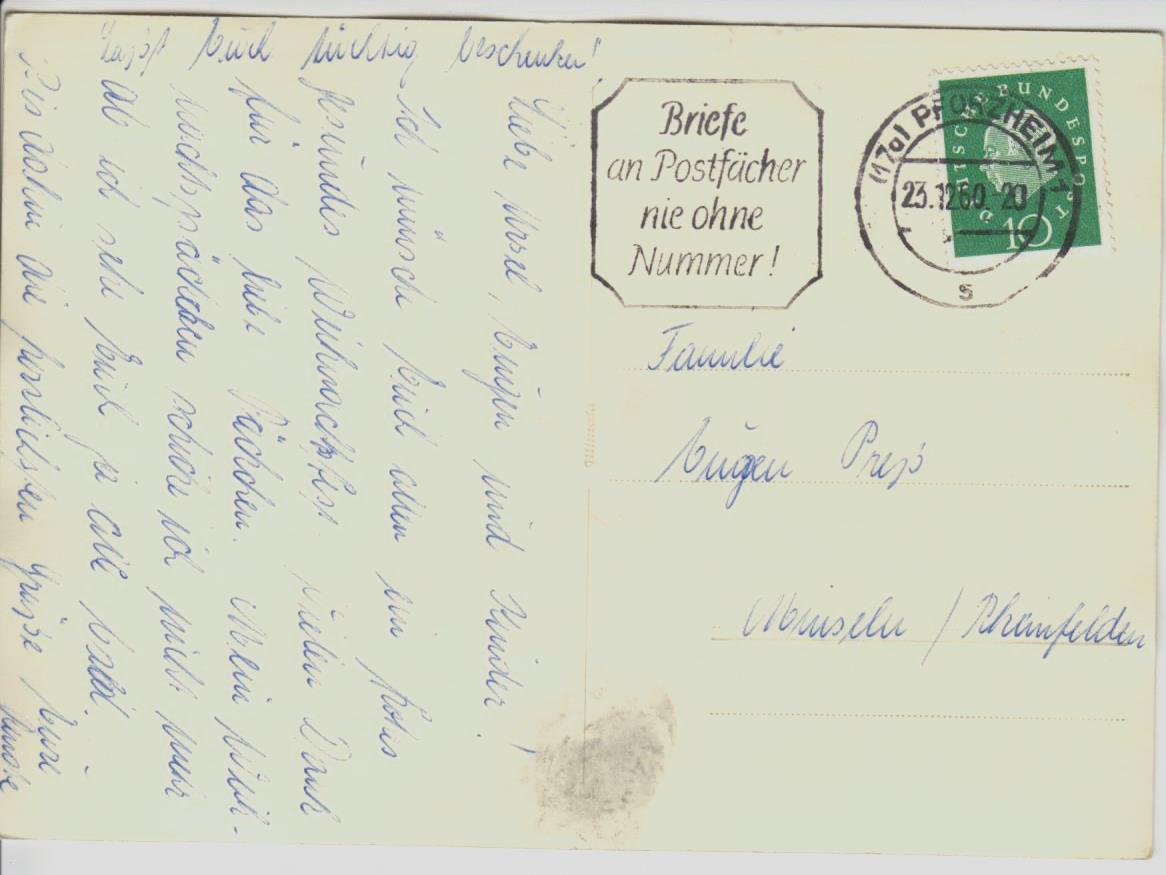 Lasst Euch tüchtig beschenken!
Liebe Ursel, Eugen und Kinder!
Ich wünsche Euch allen ein frohes
gesundes Weihnachtsfest. Vielen Dank
für das liebe Päckchen. Mein Weih-
nachtspäckchen schicke ich nicht mehr
ab ich sehe Euch ja alle bald.
Bis dahin die herzlichsten Grüsse Eure
Briefe
an Postfächer
nie ohne
Nummer!
(17a) PFORZHEIM 1
23.12.60.-20
s
DEUTSCHE BUNDESPOST
10
Familie
Eugen Preß
Minseln / Rheinfelden